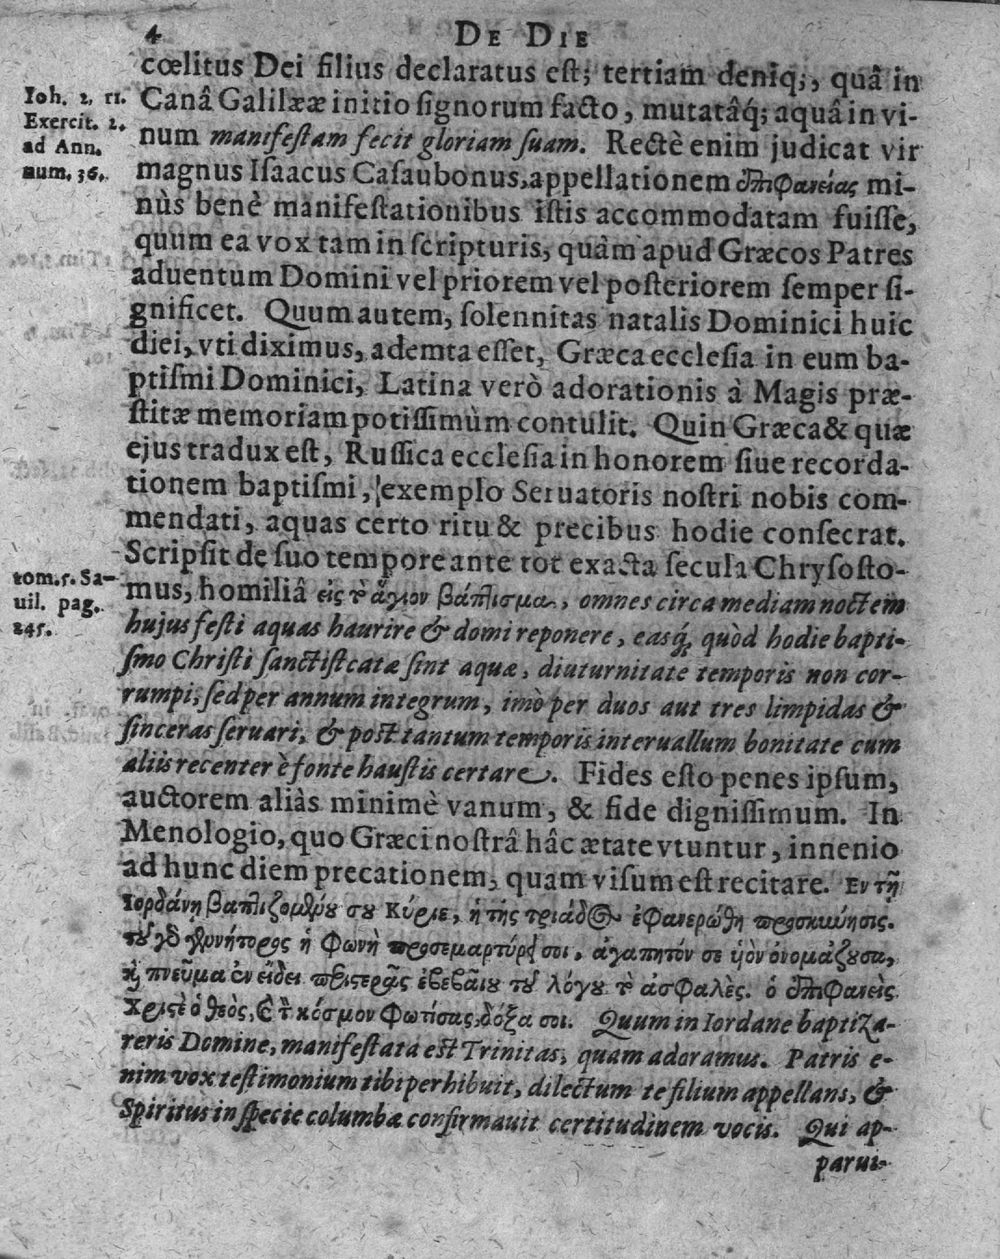 4 DE DIE
cœlitus Dei filius declaratus est; tertiam deniq;, quâ in
Ioh. 2, 11. Canâ Galilææ initio signorum facto, mutatâq; aquâ in vi-
Exercit. 2. num manifestam fecit gloriam suam. Rectè enim judicat vir
ad Ann. magnus Isaacus Casaubonus, appellationem ἐπιφανείας mi-
num. 36. nùs benè manifestationibus istis accommodatam fuisse,
quum ea vox tam in scripturis, quàm apud Græcos Patres
aduentum Domini vel priorem vel posteriorem semper si-
gnificet. Quum autem, solennitas natalis Dominici huic
diei, vti diximus, ademta esset, Græca ecclesia in eum ba-
ptismi Dominici, Latina verò adorationis à Magis præ-
stitæ memoriam potissimùm contulit. Quin Græca & quæ
ejus tradux est, Russica ecclesia in honorem siue recorda-
tionem baptismi, exemplo Seruatoris nostri nobis com-
mendati, aquas certo ritu & precibus hodie consecrat.
Scripsit de suo tempore ante tot exacta secula Chrysosto-
tom. 5. Sa- mus, homiliâ εἰς τὸ ἅγιον βάπτισμα, omnes circa mediam noctem
uil. pag. hujus festi aquas haurire & domi reponere, easq́; quòd hodie bapti-
245. smo Christi sanctistcatæ sint aquæ, diuturnitate temporis non cor-
rumpi, sed per annum integrum, imò per duos aut tres limpidas &
sinceras seruari, & post tantum temporis interuallum bonitate cum
aliis recenter è fonte haustis certare. Fides esto penes ipsum,
auctorem aliàs minimè vanum, & fide dignissimum. In
Menologio, quo Græci nostrâ hâc ætate vtuntur, innenio
ad hunc diem precationem, quam visum est recitare. Εν τῇ
Ιορδάνῃ βαπτιζομένου σου Κύριε, ἡ τῆς τριάδος ἐφανερώθη προσκύνησις.
τοῦ γὸ γεννήτορος ἡ φωνὴ προσεμαρτύρει σοι, ἀγαπητόν σε ὑὸν ὀνομάζουσα,
καὶ πνεῦμα ἐν εἴδει περιστερᾶς ἐβεβαίου τοῦ λόγου τὸ ἀσφαλὲς. ὁ ἐπιφανεὶς
Χριστὲ ὁ θεὸς, καὶ τὸν κόσμον φωτίσας, δόξα σοι. Quum in Iordane baptiza-
reris Domine, manifestata est Trinitas, quam adoramus. Patris e-
nim vox testimonium tibi perhibuit, dilectum te filium appellans, &
Spiritus in specie columbæ confirmauit certitudinem vocis. Qui ap-
parui-